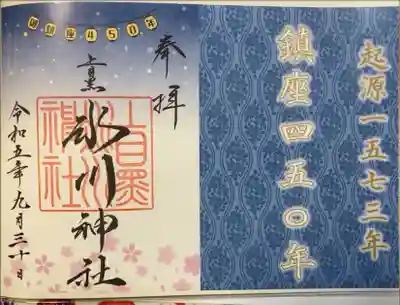 起源一五七三年
鎮座四五〇年
御鎮座450年
奉拝
上目黒
氷川神社
令和五年九月三十日